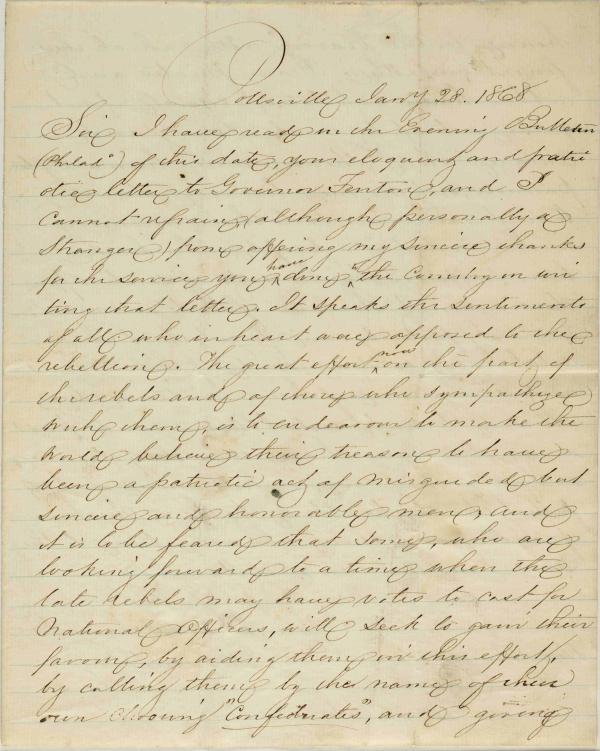 Pottsville Jany 28. 1868
Sir I have read in the Evening Bulletin
(Philada) of this date, your eloquent and patri
otic letter to Governor Fenton, and I
cannot refrain (although personally a
stranger) from offering my sincere thanks
for the service you have done to the Country in wri
ting that letter. It speaks the sentiments
of all who in heart were opposed to the
rebellion. The great effort now on the part of
the rebels and of those who sympathize
with them, is to endeavour to make the
world believe their treason to have
been a patriotic act of misguided but
sincere and honorable men, and
it is to be feared that some, who are
looking forward to a time when the
late rebels may have votes to cast for
National Officers, will seek to gain their
favour, by aiding them in this effort,
by calling them by the name of their
own choosing "Confederates", and giving